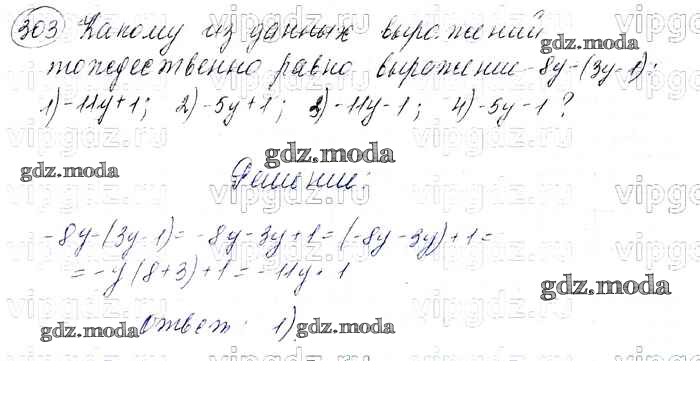 303 Какому из данных выражений
тождественно равно выражение -8y-(3y-1):
1) -11y+1; 2) -5y+1; 3) -11y-1; 4) -5y-1?
Решение:
-8y-(3y-1)= -8y-3y+1=(-8y-3y)+1=
= -y(8+3)+1= -11y+1
Ответ: 1)
gdz.moda
gdz.moda
gdz.moda
gdz.moda
gdz.moda
gdz.moda
vipgdz.ru